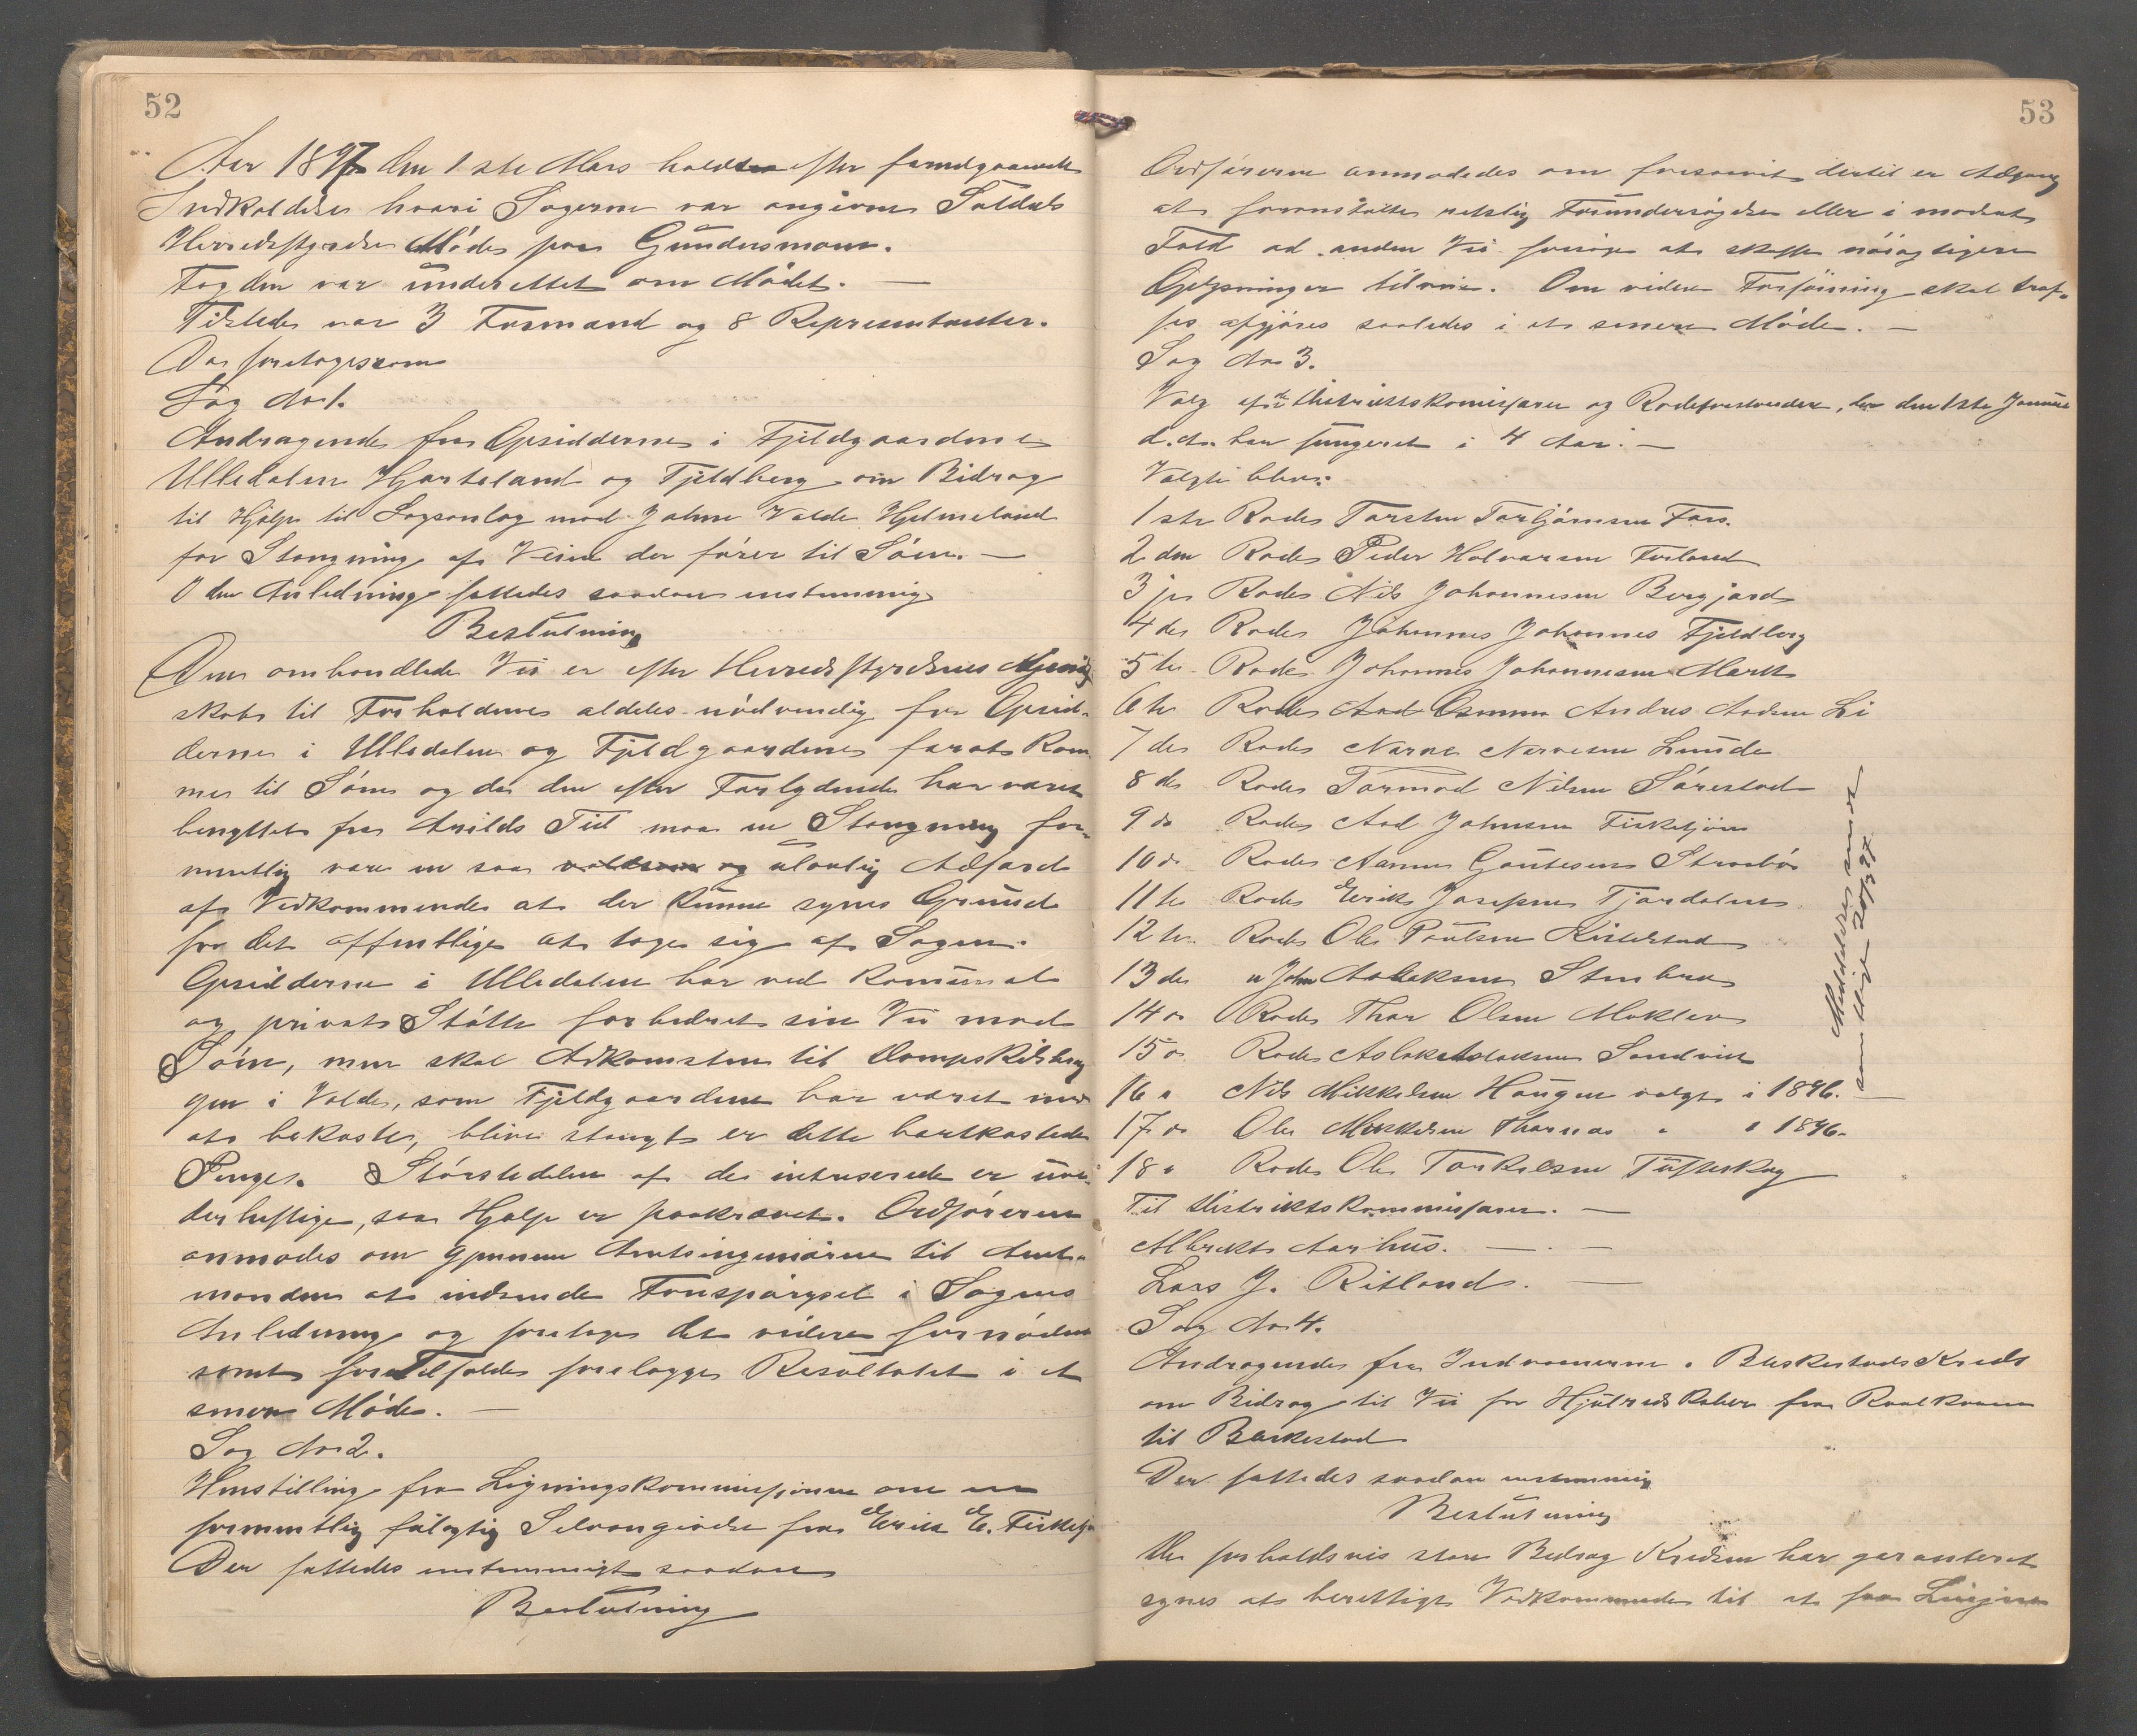 52
Aar 1897 den 1ste Mars holdtes efter forudgaaende
Indkaldelse hvori Sagerne var angivne Suldals
Herredsstyrelse Møde paa Gundersmoen.
Fogden var underettet om Mødet. —
Tilstede var 3 Formænd og 8 Repræsentanter.
Da foretoges som
Sag No 1.
Andragende fra Opsidderne i Fjeldgaardene
Ulledalen Hjorteland og Fjeldberg om Bidrag
til Hjælp til Sagsanlæg mod Johne Valde Hjelmeland
for Stængning af Veien der fører til Søen. —
I den Anledning fattedes saadan enstemmig
Beslutning
Den omhandlede Vei er efter Herredsstyrelsens Kjend-
skab til Forholdene aldeles nødvendig for Opsid-
derne i Ulledalen og Fjeldgaardene forat kom-
me til Søen og da den efter Forlydende har været
benyttet fra Arilds Tid maa en Stængning for-
mentlig være en saa voldsom og ulovlig Adfærd
af Vedkommende at der kunne synes Grund
for det offentlige at tage sig af Sagen.
Opsidderne i Ulledalen har ved Komunal
og privat Støtte forbedret sin Vei mod
Søen, men skal Adkomsten til Dampskibsbryg
gen i Valde, som Fjeldgaardene har været med
at bekoste, blive stængt er dette bortkastede
Penge. Størstedelen af de intreserede er uve-
derheftige, saa Hjælp er paakrævet. Ordføreren
anmodes om gjennem Amtsingeniøren til Amt-
manden at indsende Forespørgsel i Sagens
Anledning og foretage det videre fornødne
samt forelægge Resultatet i et
senere Møde. —
Sag No 2.
Henstilling fra Ligningskommissionen om en
formentlig feilagtig Selvangivelse fra Erik E. Fiskekjøn
Der fattedes enstemmigt saadan
Beslutning
53
Ordføreren anmodedes om forsaavit dertil er Adgang
at foranstalte retslig Forundersøgelse eller i modsat
Fald ad anden Vei forsøge at skaffe nøiagtigere
Oplysninger tilveie. Om videre Forføining skal træf-
fes afgjøres saaledes i et senere Møde. —
Sag No 3.
Valg af de Distriktskomissærer og Rodeforstandere, der den 1ste Januar
d.A. har fungeret i 4 Aar. —
Valgte blev:
1ste Rode Torsten Torbjørnsen Foss.
2den Rode Peder Halvorsen Forland
3je Rode Nils Johannesen Bergjord
4de Rode Johannes Johannes Fjeldberg
5te Rode Johannes Johannesen Mark
6te Rode Aad Osmun Andres Aadsen Li
7de Rode Narve Narvesen Lunde
8de Rode Tormod Nilsen Sørestad
9 do Rode Aad Johnsen Fiskekjøn
10 do Rode Aamun Gautesen Straabø
11te Rode Erik Josepsen Fjordalen
12te Rode Ole Poulsen Kirkestad
13de " John Aslaksen Stenbru
14 do Rode Thor Olsen Moklev
15 do Rode Aslak Aslaksen Sandvik
16 " Nils Mikkelsen Haugen valgt i 1896.
17 do Ole Mikkelsen Thornas " " 1896.
18 " Rode Ole Torkelsen Tufteskog
Til Distriktskommissærer. —
Albrekt Aarhus. —
Lars J. Ritland. —
Meddeleres samt
samtlige 20/3 97
Sag No 4.
Andragende fra Indvaanerne i Bleskestads Kreds
om Bidrag til Vei for Hjulredskaber fra Roalkvam
til Bleskestad
Der fattedes saadan enstemmig
Beslutning
Det forholdsvis store Bidrag Kredsen har garanteret
synes at berettige Vedkommende til at faa Linjen